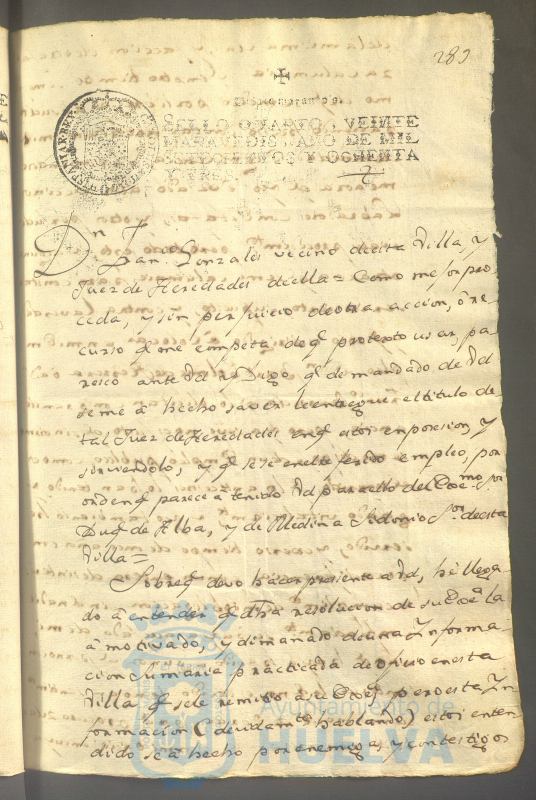 283
SELLO QVARTO, VEINTE
MARAVEDIS, AÑO DE MIL
Y OCHENTA
Y TRES.
Dn Franco Gonzales vecino de esta Villa, y
Juez de Heredades de ella = Como mejor pro
ceda, y sin perjuicio de otra accion, ô re
curso qe me competa de qe protexto usar, pa
resco ante Vd y Digo qe de mandado de Vd
se me â hecho saver le entregue el titulo de
tal Juez de Heredades en qe estoi en posesion, y
sirviendolo, y qe sese en el referido empleo, por
orden qe parece a tenido Vd para ello del Exmo Sor
Duqe de Alba, y de Medina Sidonia Sor de esta
Villa =
Sobre qe devo hacer presente a Vd, hê llega
do â entender qe dha resolucion de su Exa la
â motivado, y dimanado de una Informa
cion Sumaria practicada de oficio en esta
Villa qe se le remitio a su Exa, pero esta In
formacion (devidamte hablando) estoi enten
dido se â hecho por enemigos, y con testigos
Ayuntamiento de
HUELVA